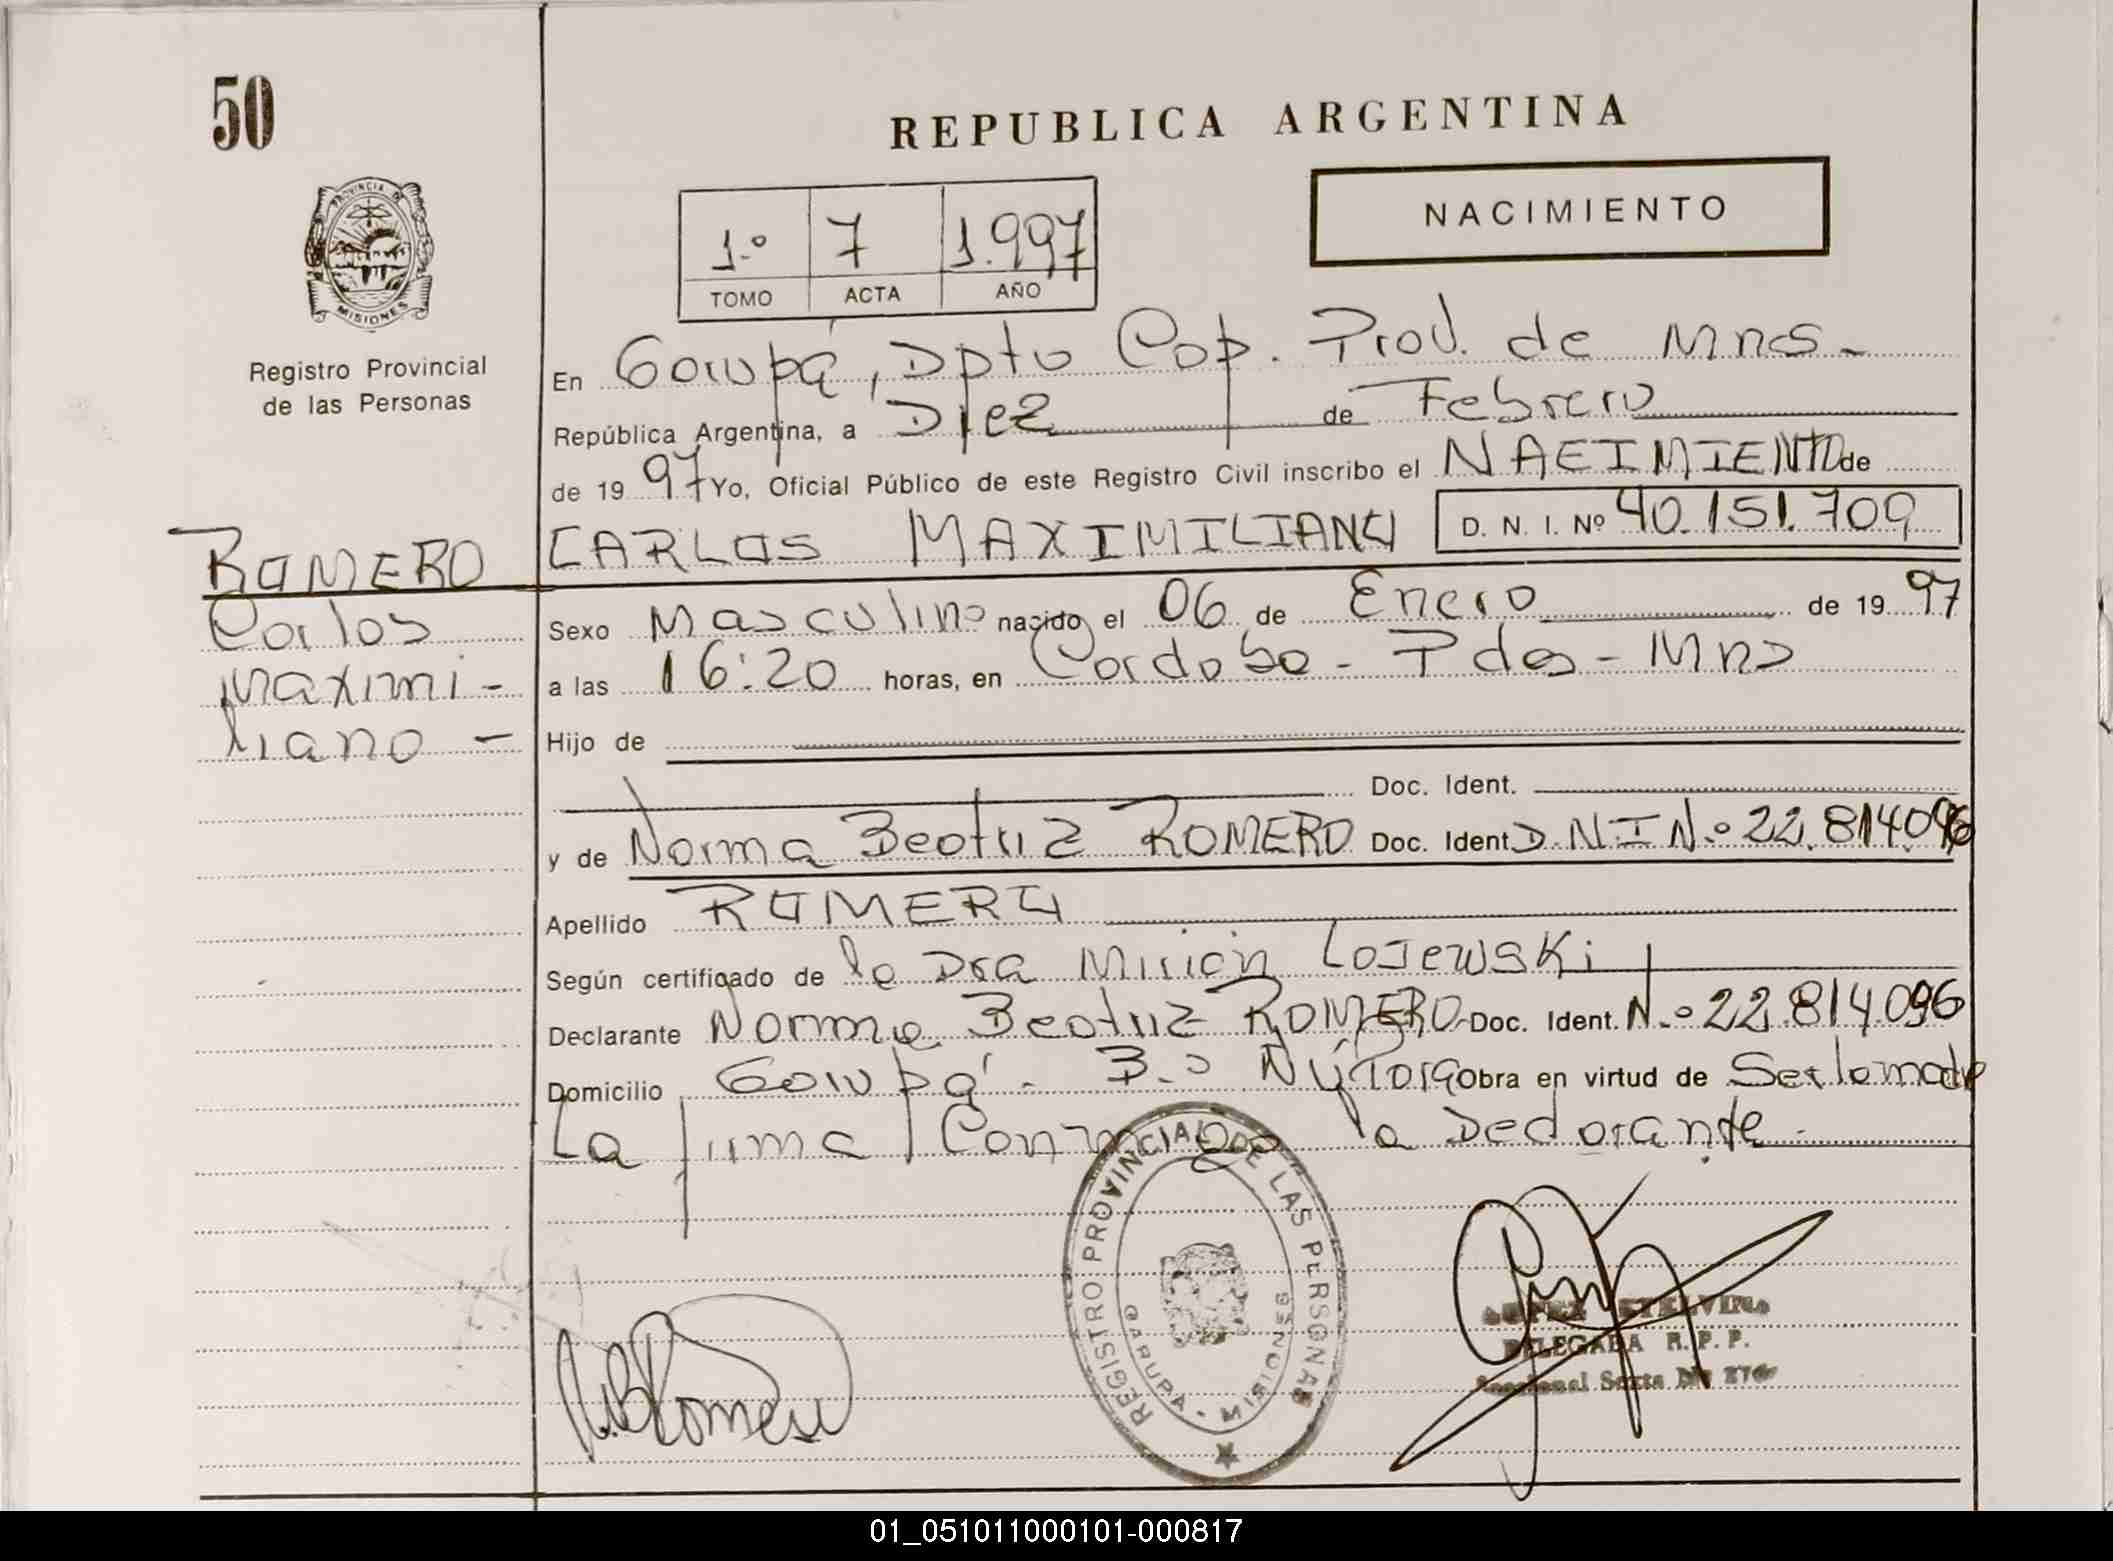 50
REPUBLICA ARGENTINA
NACIMIENTO
1.º 7 1.997
TOMO ACTA AÑO
PROVINCIA DE
MISIONES
Registro Provincial
de las Personas
En Garupá, Dpto Cap. Prov. de Mnes -
República Argentina, a Diez de Febrero
de 19 97 Yo, Oficial Público de este Registro Civil inscribo el NACIMIENTO de
CARLOS MAXIMILIANO D. N. I. Nº 40.151.709
ROMERO
Carlos
Maximi -
liano -
Sexo Masculino nacido el 06 de Enero de 19 97
a las 16:20 horas, en Cordoba - Pdas - Mns
Hijo de
Doc. Ident.
y de Norma Beatriz ROMERO Doc. Ident D.N.I N.º 22.814.096
Apellido ROMERO
Según certificado de la Dra Mirian Lojewski
Declarante Norma Beatriz ROMERO Doc. Ident. N.º 22.814.096
Domicilio Garupá - B.º Ñu Porá Obra en virtud de Ser la madre
La firma Conmigo la Declarante -
N.B Romero
REGISTRO PROVINCIAL DE LAS PERSONAS
GARUPA - MISIONES
ETELVINA
DELEGADA R. P. P.
Seccional Sexta
01_051011000101-000817